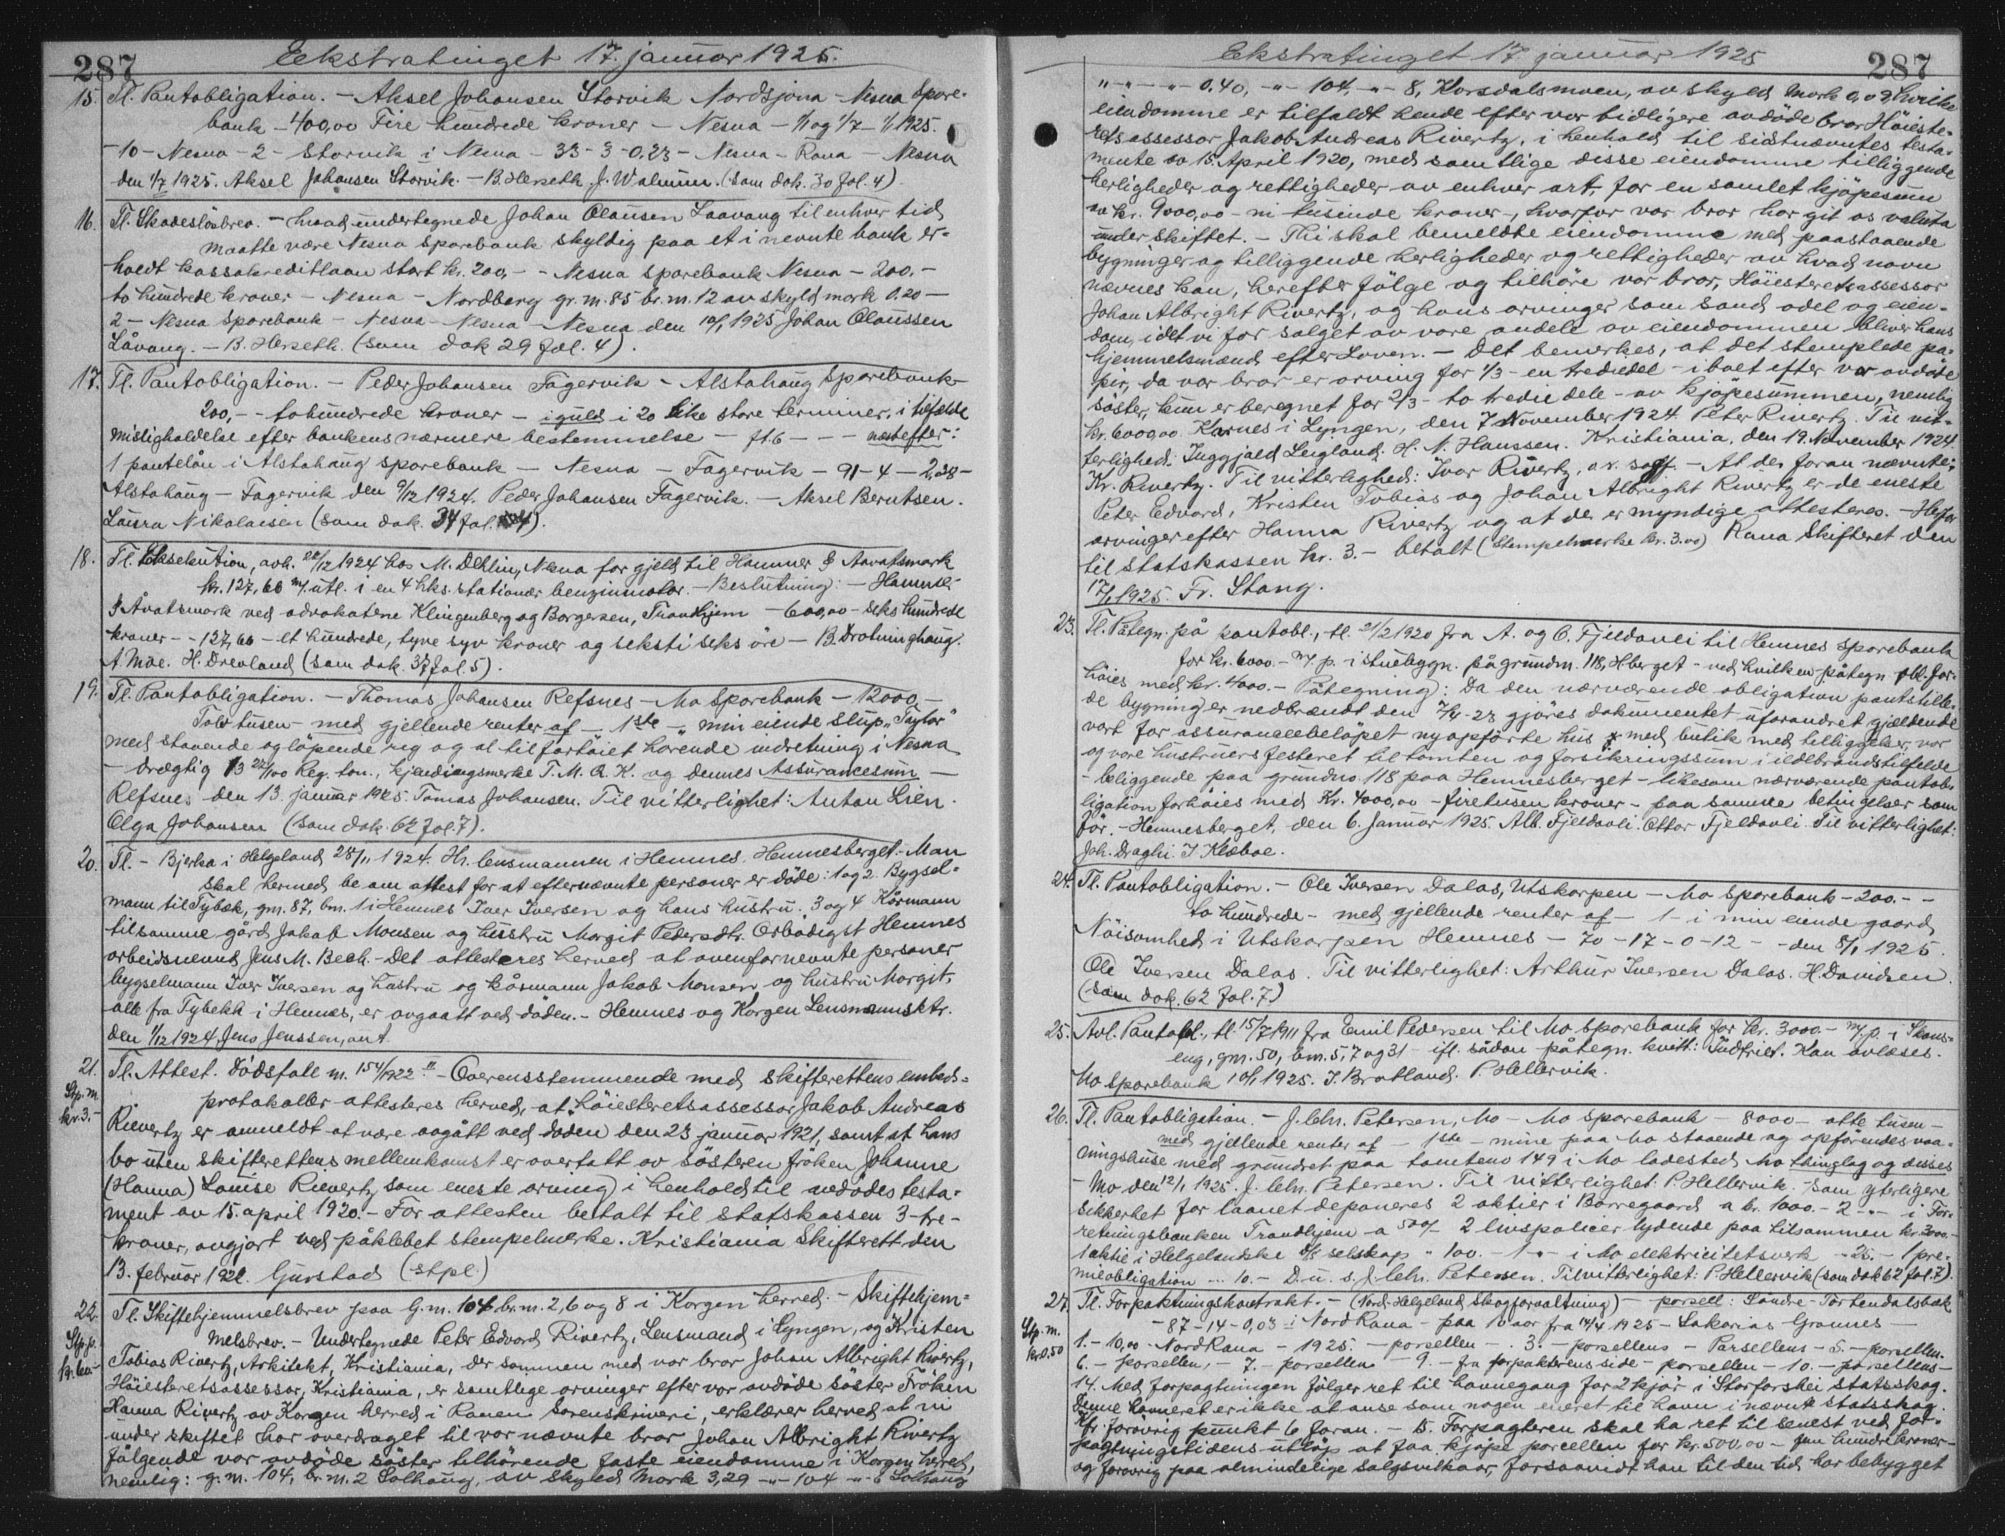 287 Ekstratinget 17. januar 1925.
15. Tl. Pantobligation. – Aksel Johansen Storvik Nordsjona – Nesna Spore-
bank – 400,00 Fire hundrede kroner – Nesna – 1/1 og 1/7 – 1/1 1925.
– 10 – Nesna – 2 – Storvik i Nesna – 33 – 3 – 0.23 – Nesna – Rana – Nesna
den 1/7 1925. Aksel Johansen Storvik. – B. Herseth, J. Walnum. (som dok. 30 fol. 4).
16. Tl. Skadeslösbrev. – hvad undertegnede Johan Olausen Laavang til enhver tid
maatte være Nesna Sporebank skyldig paa et i nevnte bank er-
holdt kassakreditlaan stort kr. 200,- – Nesna sporebank Nesna – 200.-
to hundrede kroner – Nesna – Nordberg gr. m. 85 br. m. 12 av skyld mork 0.20 –
2 – Nesna Sporebank – Nesna – Nesna – Nesna den 10/1 1925 Johan Olaussen
Låvang. – B. Herseth. (som dok 29 fol. 4).
17. Tl. Pantobligation. – Peder Johansen Fagervik – Alstahaug Sporebank –
200,- – tohundrede kroner – i guld i 20 like store terminer, i tilfælde
misligholdelse efter bankens nærmere bestemmelse – ft. 6 – – – næst efter:
1 pantelån i Alstahaug sporebank – Nesna – Fagervik – 91 – 4 – 2,38 –
Alstahaug – Fagervik den 9/12 1924. Peder Johansen Fagervik. – Aksel Berntsen.
Laura Nikolaisen (som dok. 34 fol. 4).
18. Tl. Eksekution, avh. 22/12 1924 hos M. Dehlin, Nesna for gjeld til Hammer & Aavatsmark
kr. 127,66 m/ utl. i en 4 hks. stationær benzinmotor. – Beslutning: – Hammer
& Åvatsmark ved advokatene Klingenberg og Borgersen, Trondhjem – 600,00 – seks hundrede
kroner – – 127,66 – et hundrede, tyve syv kroner og seksti seks öre – B. Drotninghaug.
A. Moe. H. Drevland (som dok. 37 fol. 5).
19. Tl. Pantobligation. – Thomas Johansen Refsnes – Mo Sporebank – 12000,–
Tolv tusen – med gjellende renter af – 1ste – „ min eiende slup „Taylor"
med staaende og löpende rig og al til fartöiet hörende indretning i Nesna
– drægtig 13 22/100 Reg. ton., kjendingsmerke T. M. Q. K. og dennes Assurancesum –
Refsnes den 13. januar 1925. Tomas Johansen. Til vitterlighet: Anton Lien.
Olga Johansen (som dok. 62 fol. 7).
20. Tl. – Bjerka i Helgeland 28/11 1924. Hr. lensmannen i Hemnes, Hemnesberget. – Man
skal hermed be om attest for at efternævnte personer er döde: 1 og 2. Bygsel-
mann til Tybæk, gm. 87, bm. 1 i Hemnes Iver Iversen og hans hustru. 3 og 4 Kårmann
til samme gård Jakob Monsen og hustru Margit Pedersdtr. Örbödigst Hemnes
arbeidsnevnd Jens M. Bech. – Det attesteres herved at ovenfornevnte personer
bygselmann Iver Iversen og hustru og kårmann Jakob Monsen og hustru Margit,
alle fra Tybekk i Hemnes, er avgaatt ved döden. – Hemnes og Korgen Lensmannsktr.
den 1/12 1924. Jens Jenssen, aut.
21. Tl. Attest. Dödsfall m. 154/1922 II – Overensstemmende med skifterettens embeds-
Stp. m. protokoller attesteres herved, at höiesteretsassessor Jakob Andreas
kr. 3.- Rivertz er anmeldt at være avgått ved döden den 23 januar 1921, samt at hans
bo uten skifterettens mellemkomst er overtatt av sösteren fröken Johanne
(Hanna) Louise Rivertz som eneste arving i henhold til avdödes testa-
ment av 15. april 1920. – For attesten betalt til statskassen 3 – tre –
kroner, avgjort ved påklebet stempelmerke. Kristiania Skifterett den
13. februar 1922. Gurstad (stpl)
22. Tl. Skiftehjemmelsbrev paa G. m. 104 br. m. 2, 6 og 8 i Korgen herred. – Skiftehjem-
Stp. p. melsbrev. – Undertegnede Peter Edvard Rivertz, Lensmand i Lyngen, og Kristen
Tobias Rivertz, Arkitekt, Kristiania, der sammen med vor bror Johan Albright Rivertz,
Höiesteretsassessor, Kristiania, er samtlige arvinger efter vor avdöde söster Fröken
Hanna Rivertz av Korgen herred i Ranen Sorenskriveri, erklærer herved at vi
under skiftet har overdraget til vor nævnte bror Johan Albright Rivertz
fölgende vor avdöde söster tilhörende faste eiendomme i Korgen herred,
nemlig: g. m. 104, br. m. 2 Solhaug, av skyld Mork 3,29 –„– 104 –„– 6 Solhaug
Ekstratinget 17 januar 1925 287
„ –„– –„– 0.40, –„– 104, –„– 8, Korsdalsmoen, av skyld mork 0,09 hvilke
eiendomme er tilfaldt hende efter vor tidligere avdöde bror Höieste-
retsassessor Jakob Andreas Rivertz, i henhold til sidstnævntes testa-
mente av 15. April 1920, med samtlige disse eiendomme tilliggende
herligheder og rettigheder av enhver art, for en samlet kjöpesum
av kr. 9000,00 – ni tusinde kroner –, hvorfor vor bror har git os valuta
under skiftet. – Thi skal bemeldte eiendomme med paastaaende
bygninger og tilliggende herligheder og rettigheder av hvad navn
nævnes kan, herefter fölge og tilhöre vor bror, Höiesteretsassessor
Johan Albright Rivertz, og hans arvinger som sand odel og eien-
dom, idet vi for salget av vore andele av eiendommen bliver hans
hjemmelsmænd efter Loven. – Det bemerkes, at det stemplede pa-
pir, da vor bror er arving for 1/3 – en trediedel – i boet efter vor avdöde
söster, kun er beregnet for 2/3 – to tredie dele – av kjöpesummen, nemlig
kr. 6000,00. Karnes i Lyngen, den 7 November 1924. Peter Rivertz. Til vit-
terlighed: Inggjald Leigland. H. N. Hanssen. Kristiania, den 19. November 1924
Kr. Rivertz. Til vitterlighed: Ivar Rivertz, o.r. sagf. – At de foran nævnte:
Peter Edvard, Kristen Tobias og Johan Albright Rivertz er de eneste
arvinger efter Hanna Rivertz og at de er myndige attesteres. – Herfor
til statskassen kr. 3.– betalt (Stempelmerke kr. 3.00) Rana Skifteret den
17/1 1925. Fr. Stang.
23. Tl. Påtegn. på pantobl., tl. 21/2 1920 fra A. og O. Fjeldavli til Hemnes Sporebank
for kr. 6000.– m/ p. i stuebygn. på grundm. 118, Hberget – ved hvilken påtegn. obl. for-
höies med kr. 4000.– Påtegning: Da den nærværende obligation pantstille-
de bygning er nedbrændt den 7/4-23 gjöres dokumentet uforandret gjældende
vort for assurancebelöpet nyopförte hus med butik med tilliggelser, vor
og vore hustruers festeret til tomten og forsikringssum i ildebrandstilfelde
– beliggende paa grundno 118 paa Hemnesberget – likesom nærværende pantob-
ligation forhöies med Kr. 4000,00 – firetusen kroner – paa samme betingelser som
för. – Hemnesberget, den 6. Januar 1925. Alb. Fjeldavli. Ottar Fjeldavli. Til vitterlighet:
Joh. Draghi. I Klæboe.
24. Tl. Pantobligation. – Ole Iversen Dalos, Utskorpen – Mo Sporebank – 200.– –
to hundrede – med gjellende renter af – 1 – i min eiende gaard
Nöisomhed i Utskorpen Hemnes – 70 – 17 – 0 – 12 – – den 8/1 1925.
Ole Iversen Dalos. Til vitterlighet: Arthur Iversen Dalos. H. Davidsen.
(som dok. 62 fol. 7)
25. Avl. Pantobl., tl. 15/7 1911 fra Emil Pedersen til Mo Sporebank for kr. 3000.– m/p. i Skans-
eng, gm. 50, bm. 5, 7 og 31 – ifl. sådan påtegn. kvitt: Indfriet. Kan avlæses.
Mo Sporebank 10/1 1925. I. Bratland. P. Hellervik.
26. Tl. Pantobligation. – J. Chr. Petersen, Mo – Mo Sporebank – 8000 – otte tusen –
med gjellende renter af – 1ste – mine paa Mo staaende og opförendes vaa-
ningshuse med grundret paa tomteno 149 i Mo ladested Mo thinglag og disses
– Mo den 12/1 1925. J. Chr. Petersen. Til vitterlighet: P. Hellervik. – Som yterligere
sikkerhet for laanet deponeres 2 aktier i Borregaard a kr. 1000.– 2 –„– i For-
retningsbanken Trondhjem – a 500/– 2 livspolicer lydende paa tilsammen kr. 3000.–
1 aktie i Helgelandske selskap „ 100. – 1 –„– i Mo elektricitetsverk – 25.– 1 pre-
mieobligation –„– 10.– D. u. s. J. Chr. Petersen. Til vitterlighet: P. Hellervik (som dok 62 fol. 7).
27. Tl. Forpaktningskontrakt. – (Nord-Helgeland Skogforvaltning) – porsell: Söndre-Tortendalsbæk
Stp. m. – 87 – 14 – 0,03 – i Nord Rana – paa 10 aar fra 14/4 1925 – Sakarias Grannes –
kr 0.50 1. – 10,00 – Nord Rana – 1925. – porsellen – . 3. – porsellens – Parsellens – 5. – porsellen.
6. – porsellen, – 7. – porsellen – 9. – fra forpakterens side – porsellen – 10. – porsellens –
14. Med forpagtningen fölger ret til havnegang for 2 kjör i Storforshei statsskog.
Denne havneret er ikke at anse som nogen eieret til havn i nævnte statsskog.
Kfr. forövrig punkt 6 foran. – 15. Forpagteren skal ha ret til senest ved for-
pagtningstidens utlöp at faa kjöpe porcellen for kr. 500,00 – fem hundre kroner –
og forövrig paa almindelige salgsvilkaar, forsaavidt han til den tid har bebygget